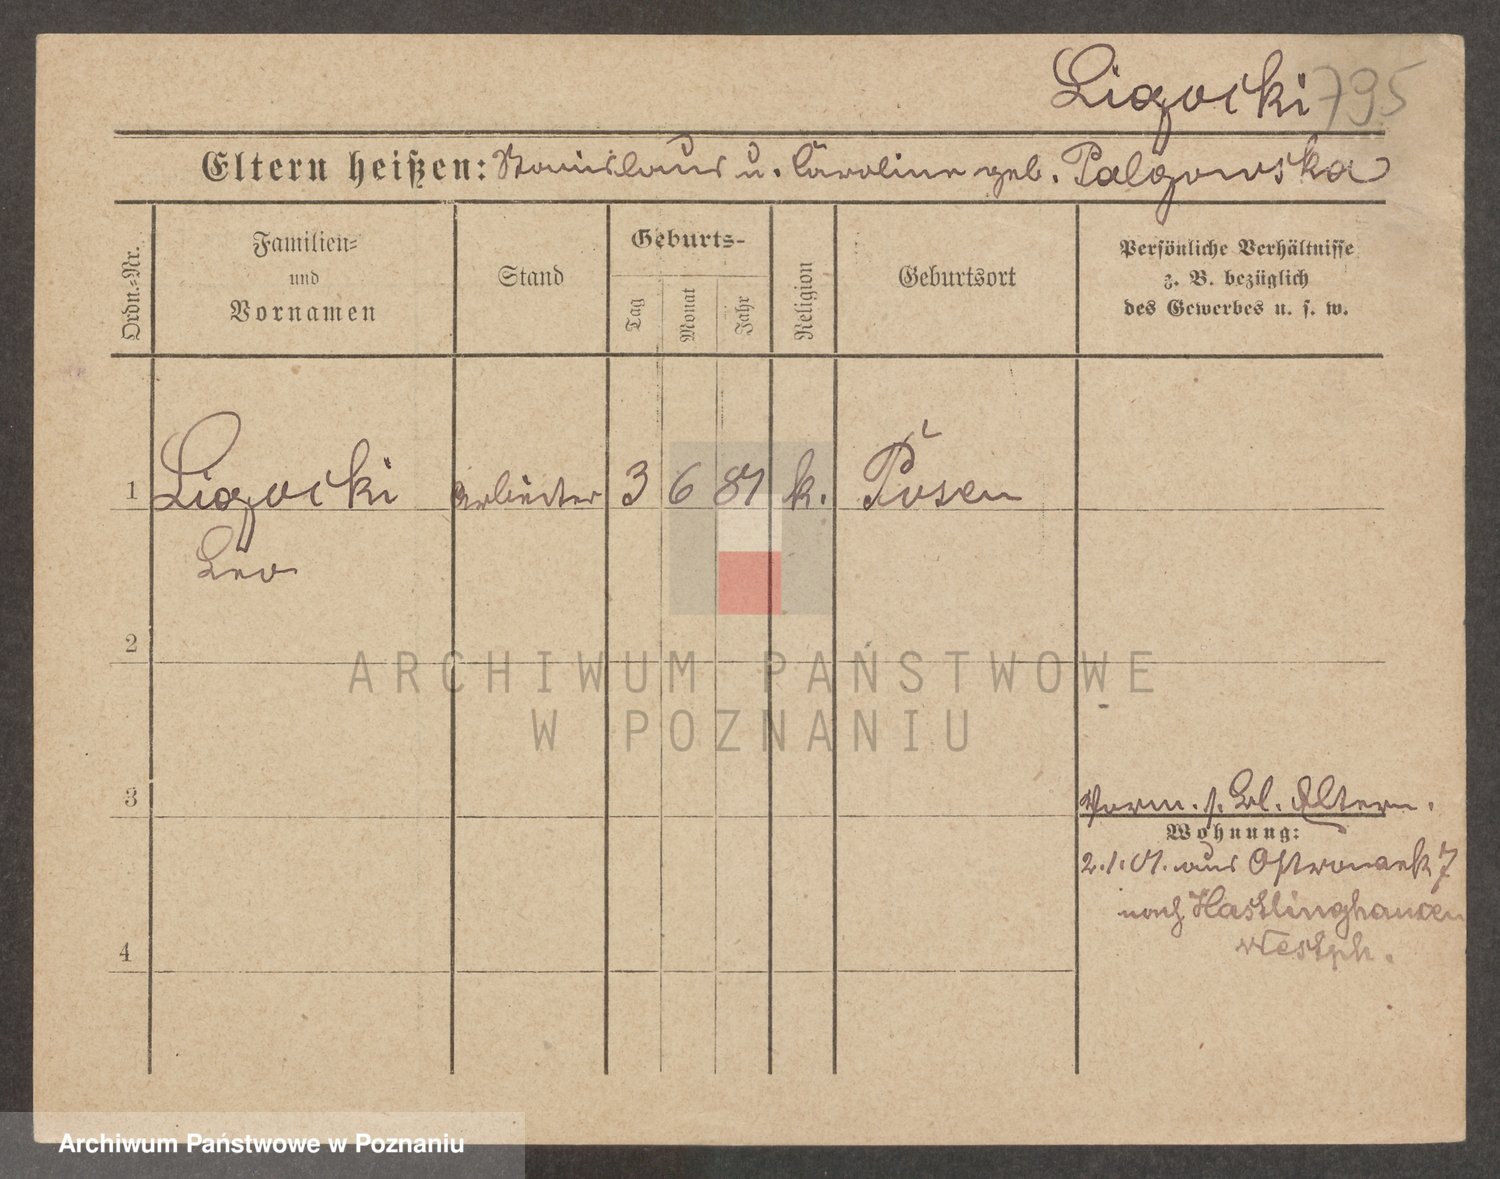 Ligocki 795
Eltern heißen: Stanislaus u. Caroline geb. Palgowska
Ordn.-Nr.
Familien-
und
Vornamen
Stand
Geburts-
Tag
Monat
Jahr
Religion
Geburtsort
Persönliche Verhältnisse
z. B. bezüglich
des Gewerbes u. s. w.
1 Ligocki Arbeiter 3 6 81 k. Posen
Leo
2
ARCHIWUM PAŃSTWOWE
W POZNANIU
3
Vorm. s. Bl. Eltern.
Wohnung:
2.1.01. aus Ostrowek 7
nach Hasslinghausen
Westph.
4
Archiwum Państwowe w Poznaniu